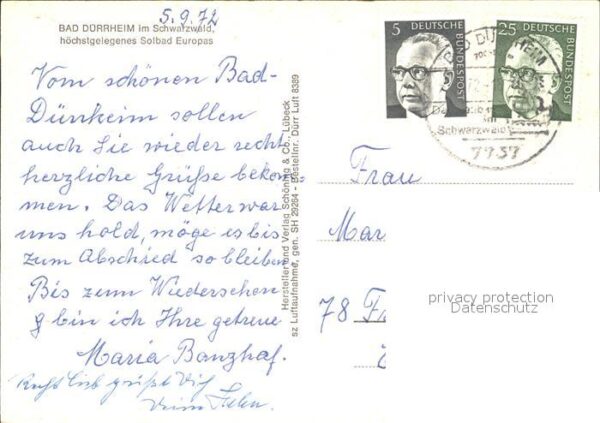 5.9.72
BAD DÜRRHEIM im Schwarzwald,
höchstgelegenes Solbad Europas
Vom schönen Bad-
Dürrheim sollen
auch Sie wieder recht
herzliche Grüße bekom-
men. Das Wetter war
uns hold, möge es bis
zum Abschied so bleiben
Bis zum Wiedersehen
bin ich Ihre getreue
Maria Banzhaf.
Recht lieb grüßt Dich
Hersteller und Verlag Schöning & Co., Lübeck
sz Luftaufnahme, gen. SH 29264 - Bestellnr. Dürr Luft 8389
5
DEUTSCHE
BUNDESPOST
25
DEUTSCHE
BUNDESPOST
BAD DÜRRHEIM
im
Schwarzwald
7737
Frau
Mar
78 F
privacy protection
Datenschutz